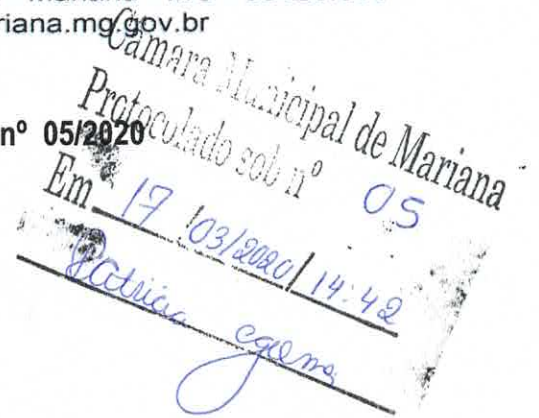 riana.mg.gov.br
nº 05/2020
Câmara Municipal de Mariana
Protocolado sob nº 05
Em 17/03/2020/14:42
Patrícia